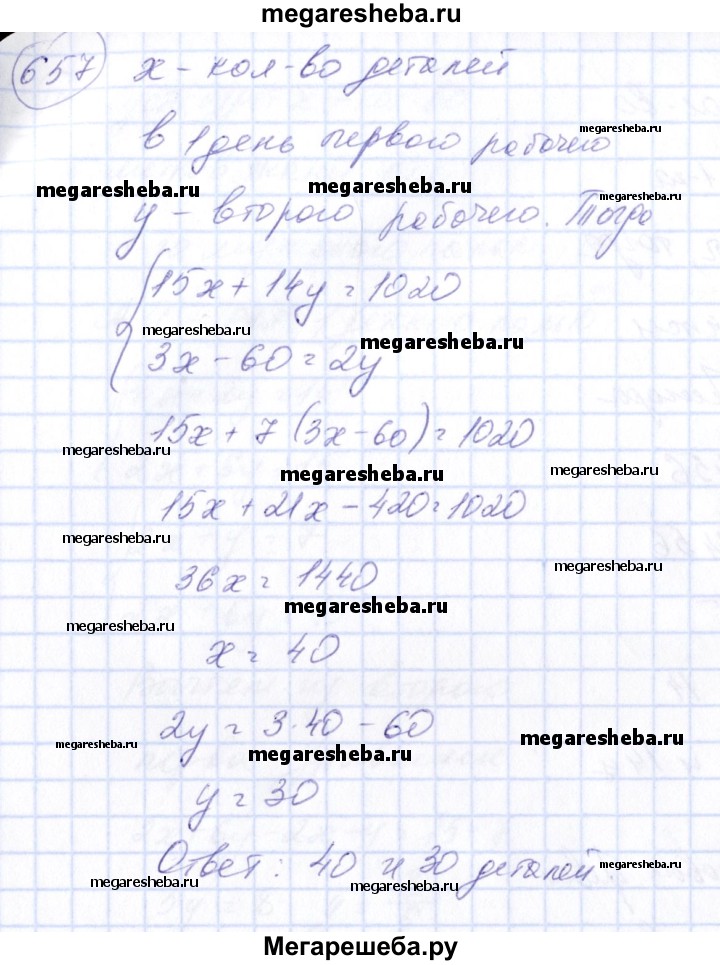 megaresheba.ru
657 x - кол-во деталей
в 1 день первого рабочего
megaresheba.ru
megaresheba.ru
megaresheba.ru
megaresheba.ru
y - второго рабочего. Тогда
15x + 14y = 1020
megaresheba.ru
megaresheba.ru
3x - 60 = 2y
15x + 7 (3x - 60) = 1020
megaresheba.ru
megaresheba.ru
megaresheba.ru
15x + 21x - 420 = 1020
megaresheba.ru
megaresheba.ru
36x = 1440
megaresheba.ru
megaresheba.ru
x = 40
2y = 3·40 - 60
megaresheba.ru
megaresheba.ru
megaresheba.ru
y = 30
Ответ: 40 и 30 деталей.
megaresheba.ru
megaresheba.ru
megaresheba.ru
Мегарешеба.ру